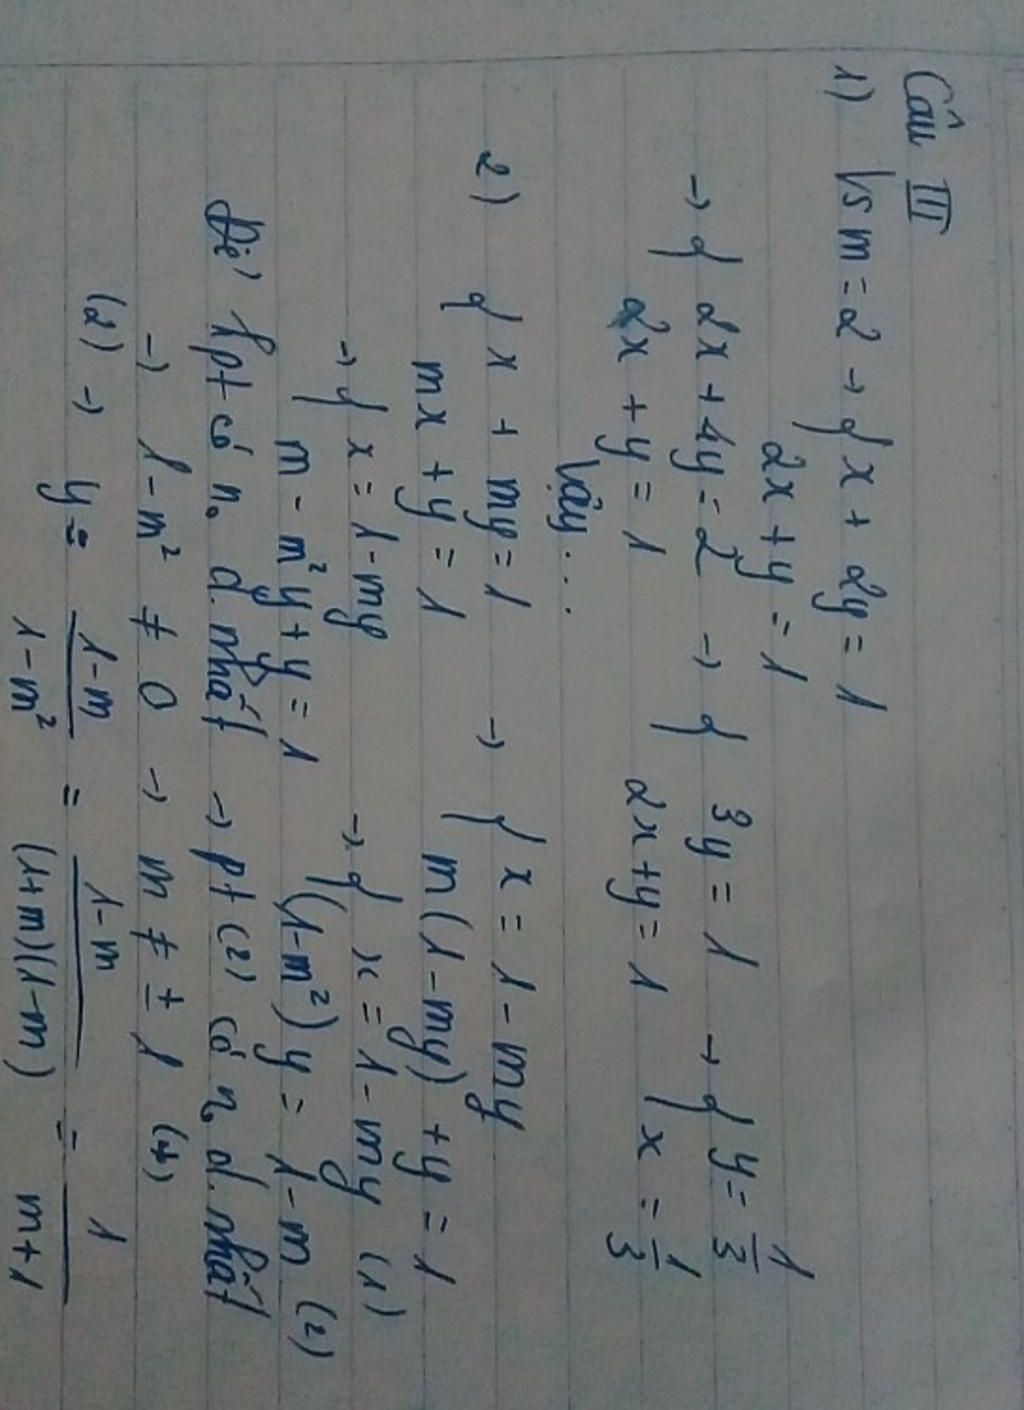 Câu III
1) Vs m = 2 → { x + 2y = 1
2x + y = 1
→ { 2x + 4y = 2 → { 3y = 1 → { y = 1/3
2x + y = 1 2x + y = 1 x = 1/3
Vậy...
2) { x + my = 1 → { x = 1 - my
mx + y = 1 m(1 - my) + y = 1
→ { x = 1 - my → { x = 1 - my (1)
m - m²y + y = 1 (1 - m²)y = 1 - m (2)
Để hpt có n₀ d. nhất → pt (2) có n₀ d. nhất
→ 1 - m² ≠ 0 → m ≠ ± 1 (*)
(2) → y = (1 - m)/(1 - m²) = (1 - m)/((1 + m)(1 - m)) = 1/(m + 1)